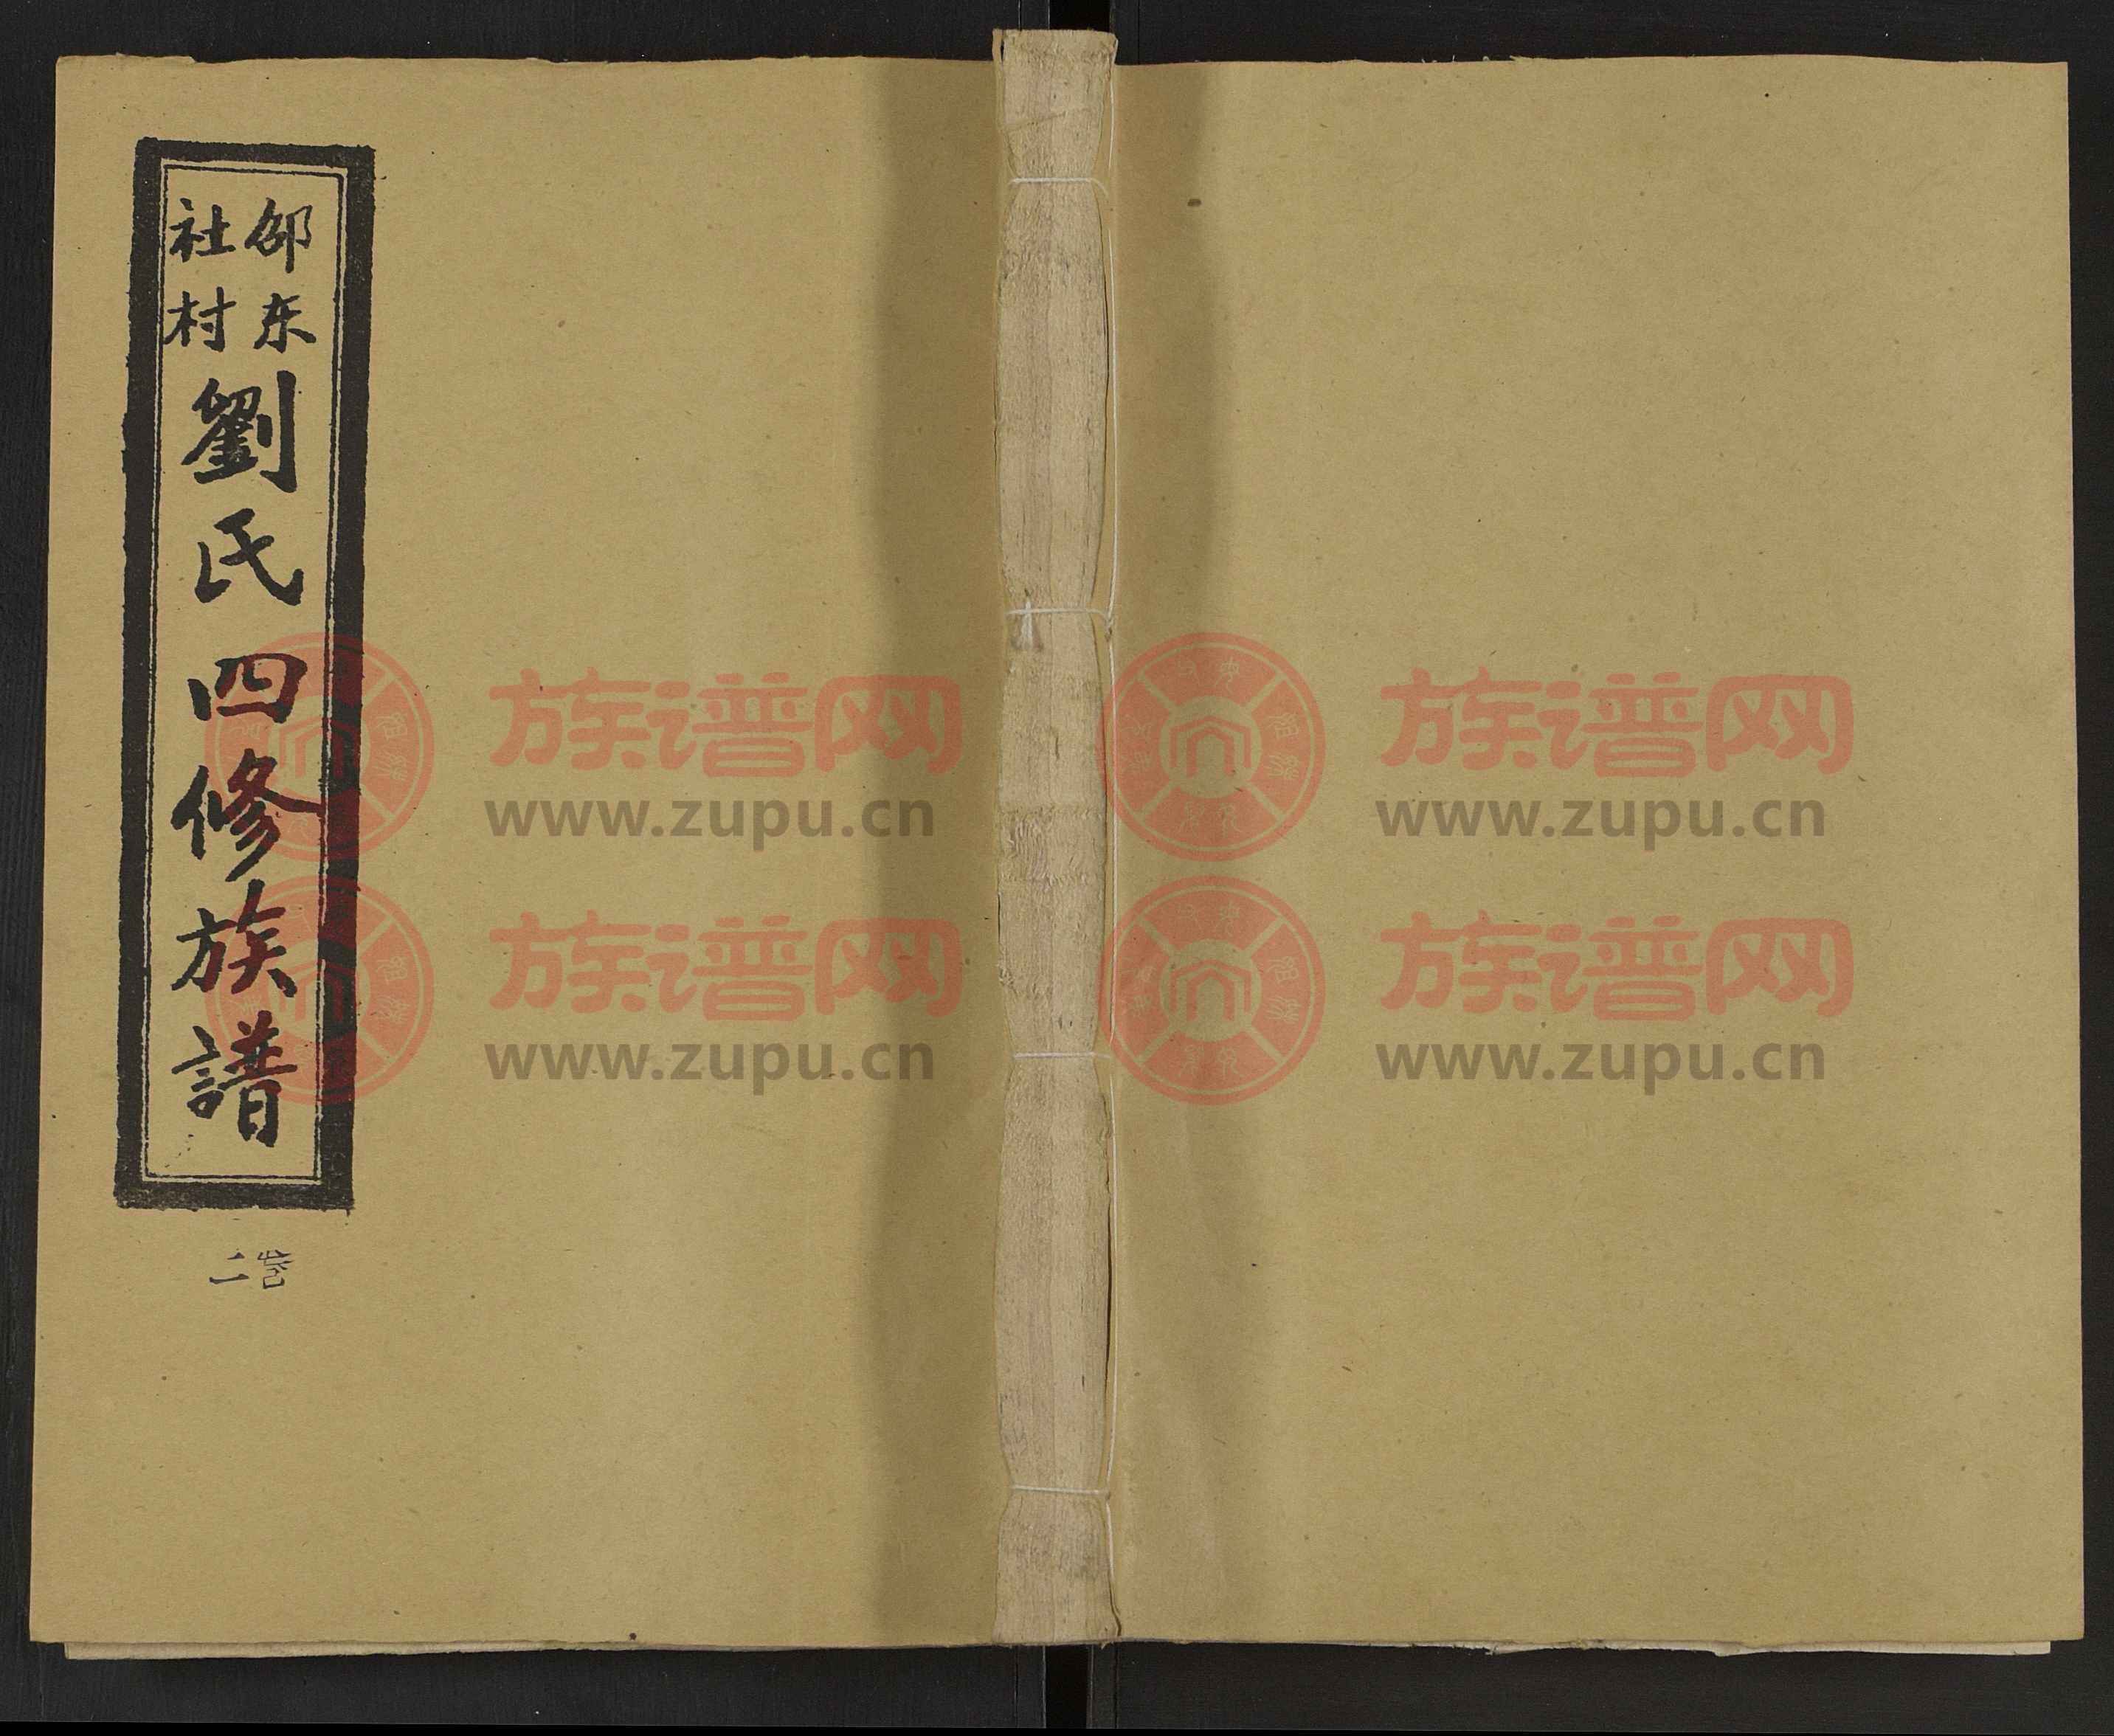 邵东
社村
劉氏四修族譜
二
族谱网
www.zupu.cn
族谱网
www.zupu.cn
族谱网
www.zupu.cn
族谱网
www.zupu.cn